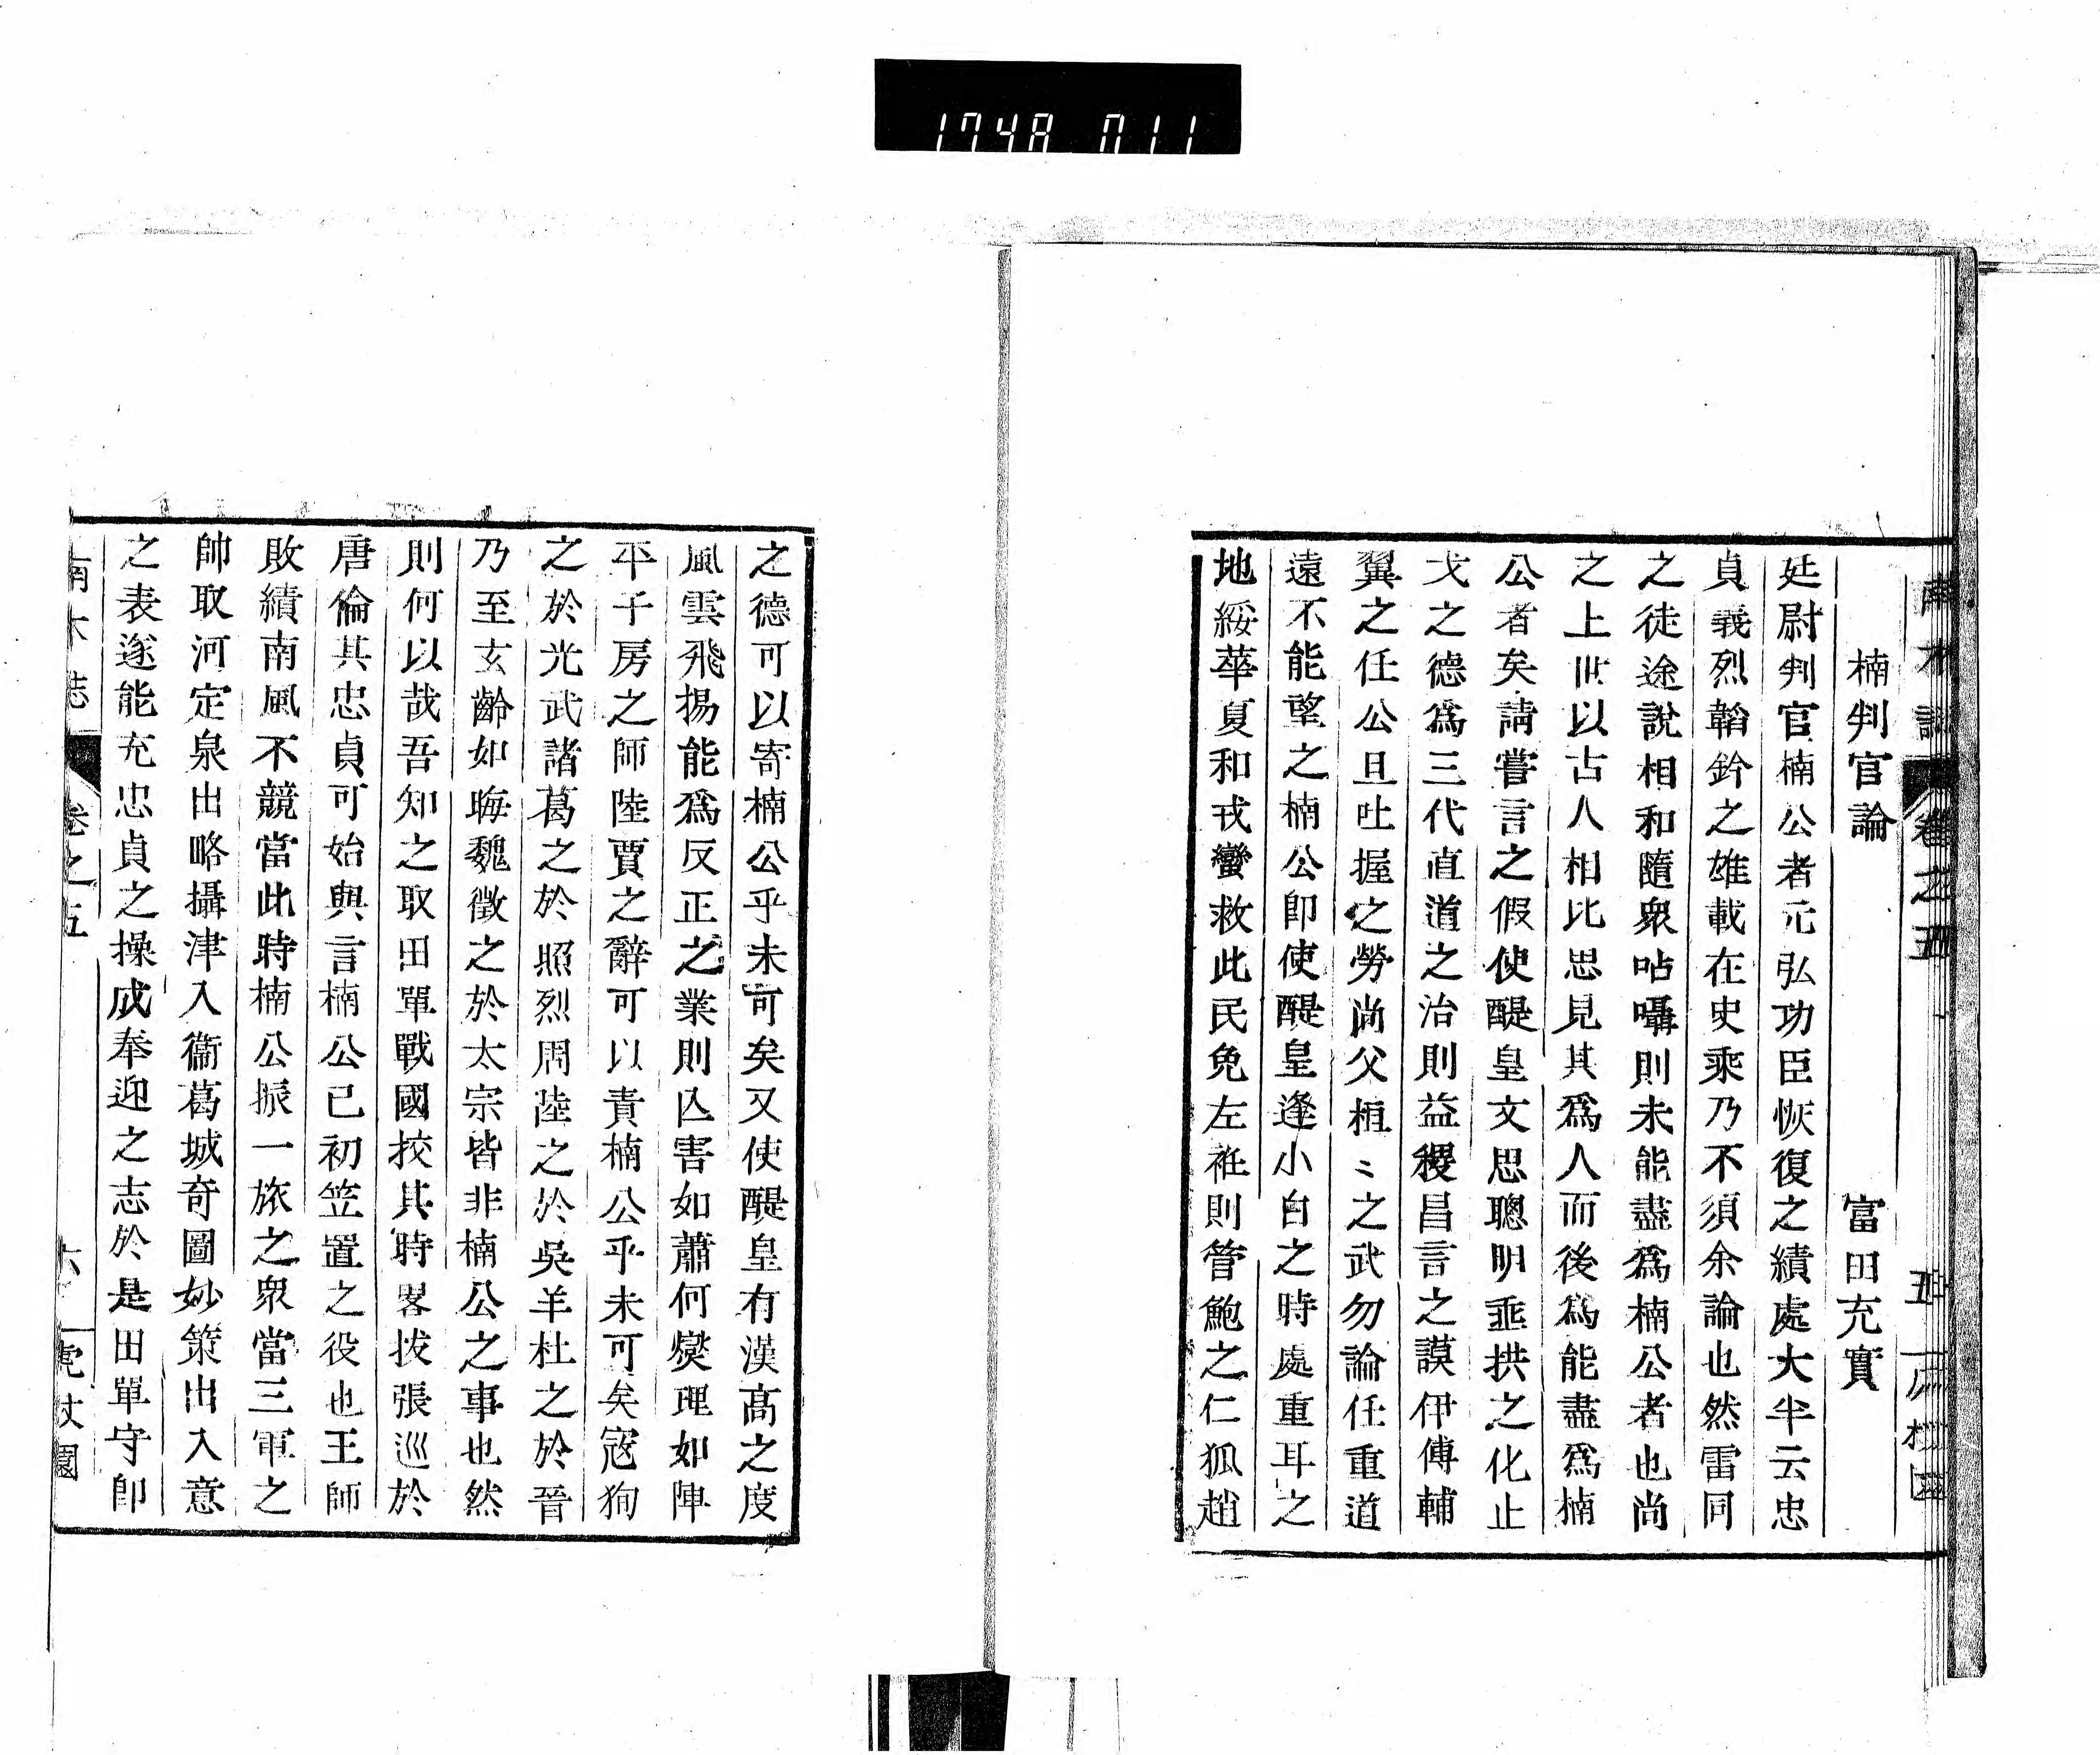 1748 011
南木誌 卷之五 五
楠判官論 富田充實
廷尉判官楠公者元弘功臣恢復之績處大半云忠
貞義烈韜鈐之雄載在史乘乃不須余論也然雷同
之徒途說相和隨衆呫囁則未能盡爲楠公者也尚
之上世以古人相比思見其爲人而後爲能盡爲楠
公者矣請嘗言之假使醍皇文思聰明垂拱之化止
戈之德爲三代直道之治則益稷昌言之謨伊傅輔
翼之任公旦吐握之勞尚父桓〻之武勿論任重道
遠不能望之楠公卽使醍皇逢小白之時處重耳之
地綏華夏和戎蠻救此民免左衽則管鮑之仁狐趙
之德可以寄楠公乎未可矣又使醍皇有漢高之度
風雲飛揚能爲反正之業則亾害如蕭何燮理如陣
平子房之師陸賈之辭可以責楠公乎未可矣寇狥
之於光武諸葛之於照烈周陸之於吳羊杜之於晉
乃至玄齡如晦魏徵之於太宗皆非楠公之事也然
則何以哉吾知之取田單戰國挍其時畧拔張巡於
唐倫其忠貞可始與言楠公已初笠置之役也王師
敗績南風不競當此時楠公振一旅之衆當三軍之
帥取河定泉出略攝津入衞葛城奇圖妙策出入意
之表遂能充忠貞之操成奉迎之志於是田單守卽
南木誌 卷之五 六 虎杖園